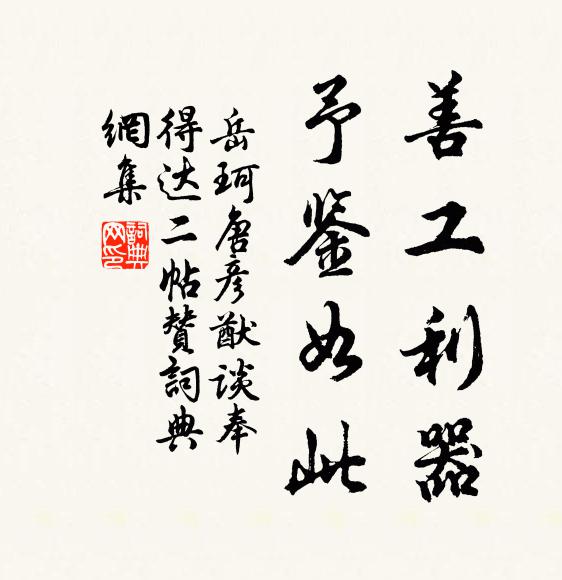 善工利器
予鉴如此
岳珂唐彦猷谈奉
得达二帖赞詞典
網集
詞典
网印